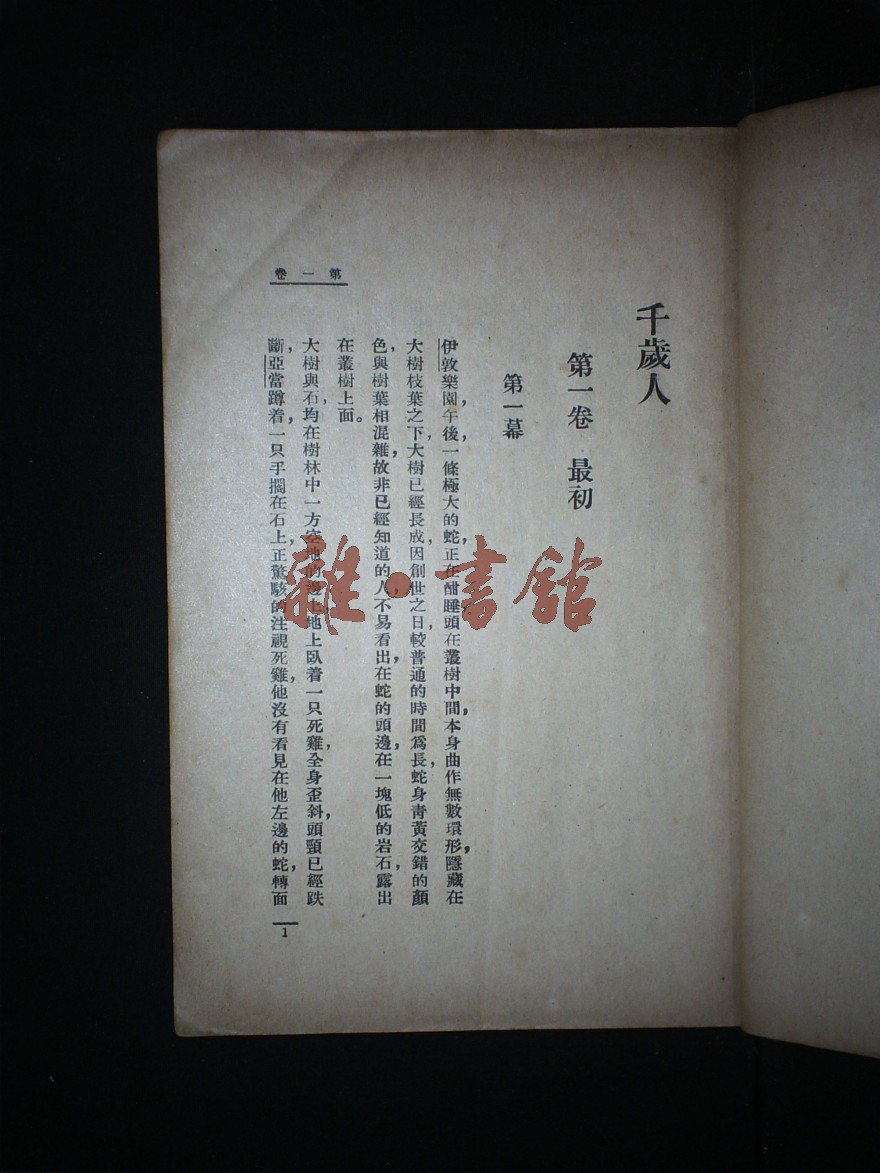 千歲人
第一卷 最初
第一幕
伊敦樂園午後，一條極大的蛇，正在酣睡，頭在叢樹中間，本身曲作無數環形，隱藏在
大樹枝葉之下，大樹已經長成，因創世之日，較普通的時間爲長，蛇身青黃交錯的顏
色，與樹葉相混雜，故非已經知道的人，不易看出，在蛇的頭邊，在一塊低的岩石，露出
在叢樹上面。
大樹與石，均在樹林中一方空地的邊上，地上臥着一只死雞，全身歪斜，頭頸已經跌
斷，亞當蹲着，一只手擱在石上，正驚駭的注視死雞，他沒有看見在他左邊的蛇，轉面
第一卷
1
雜·書館